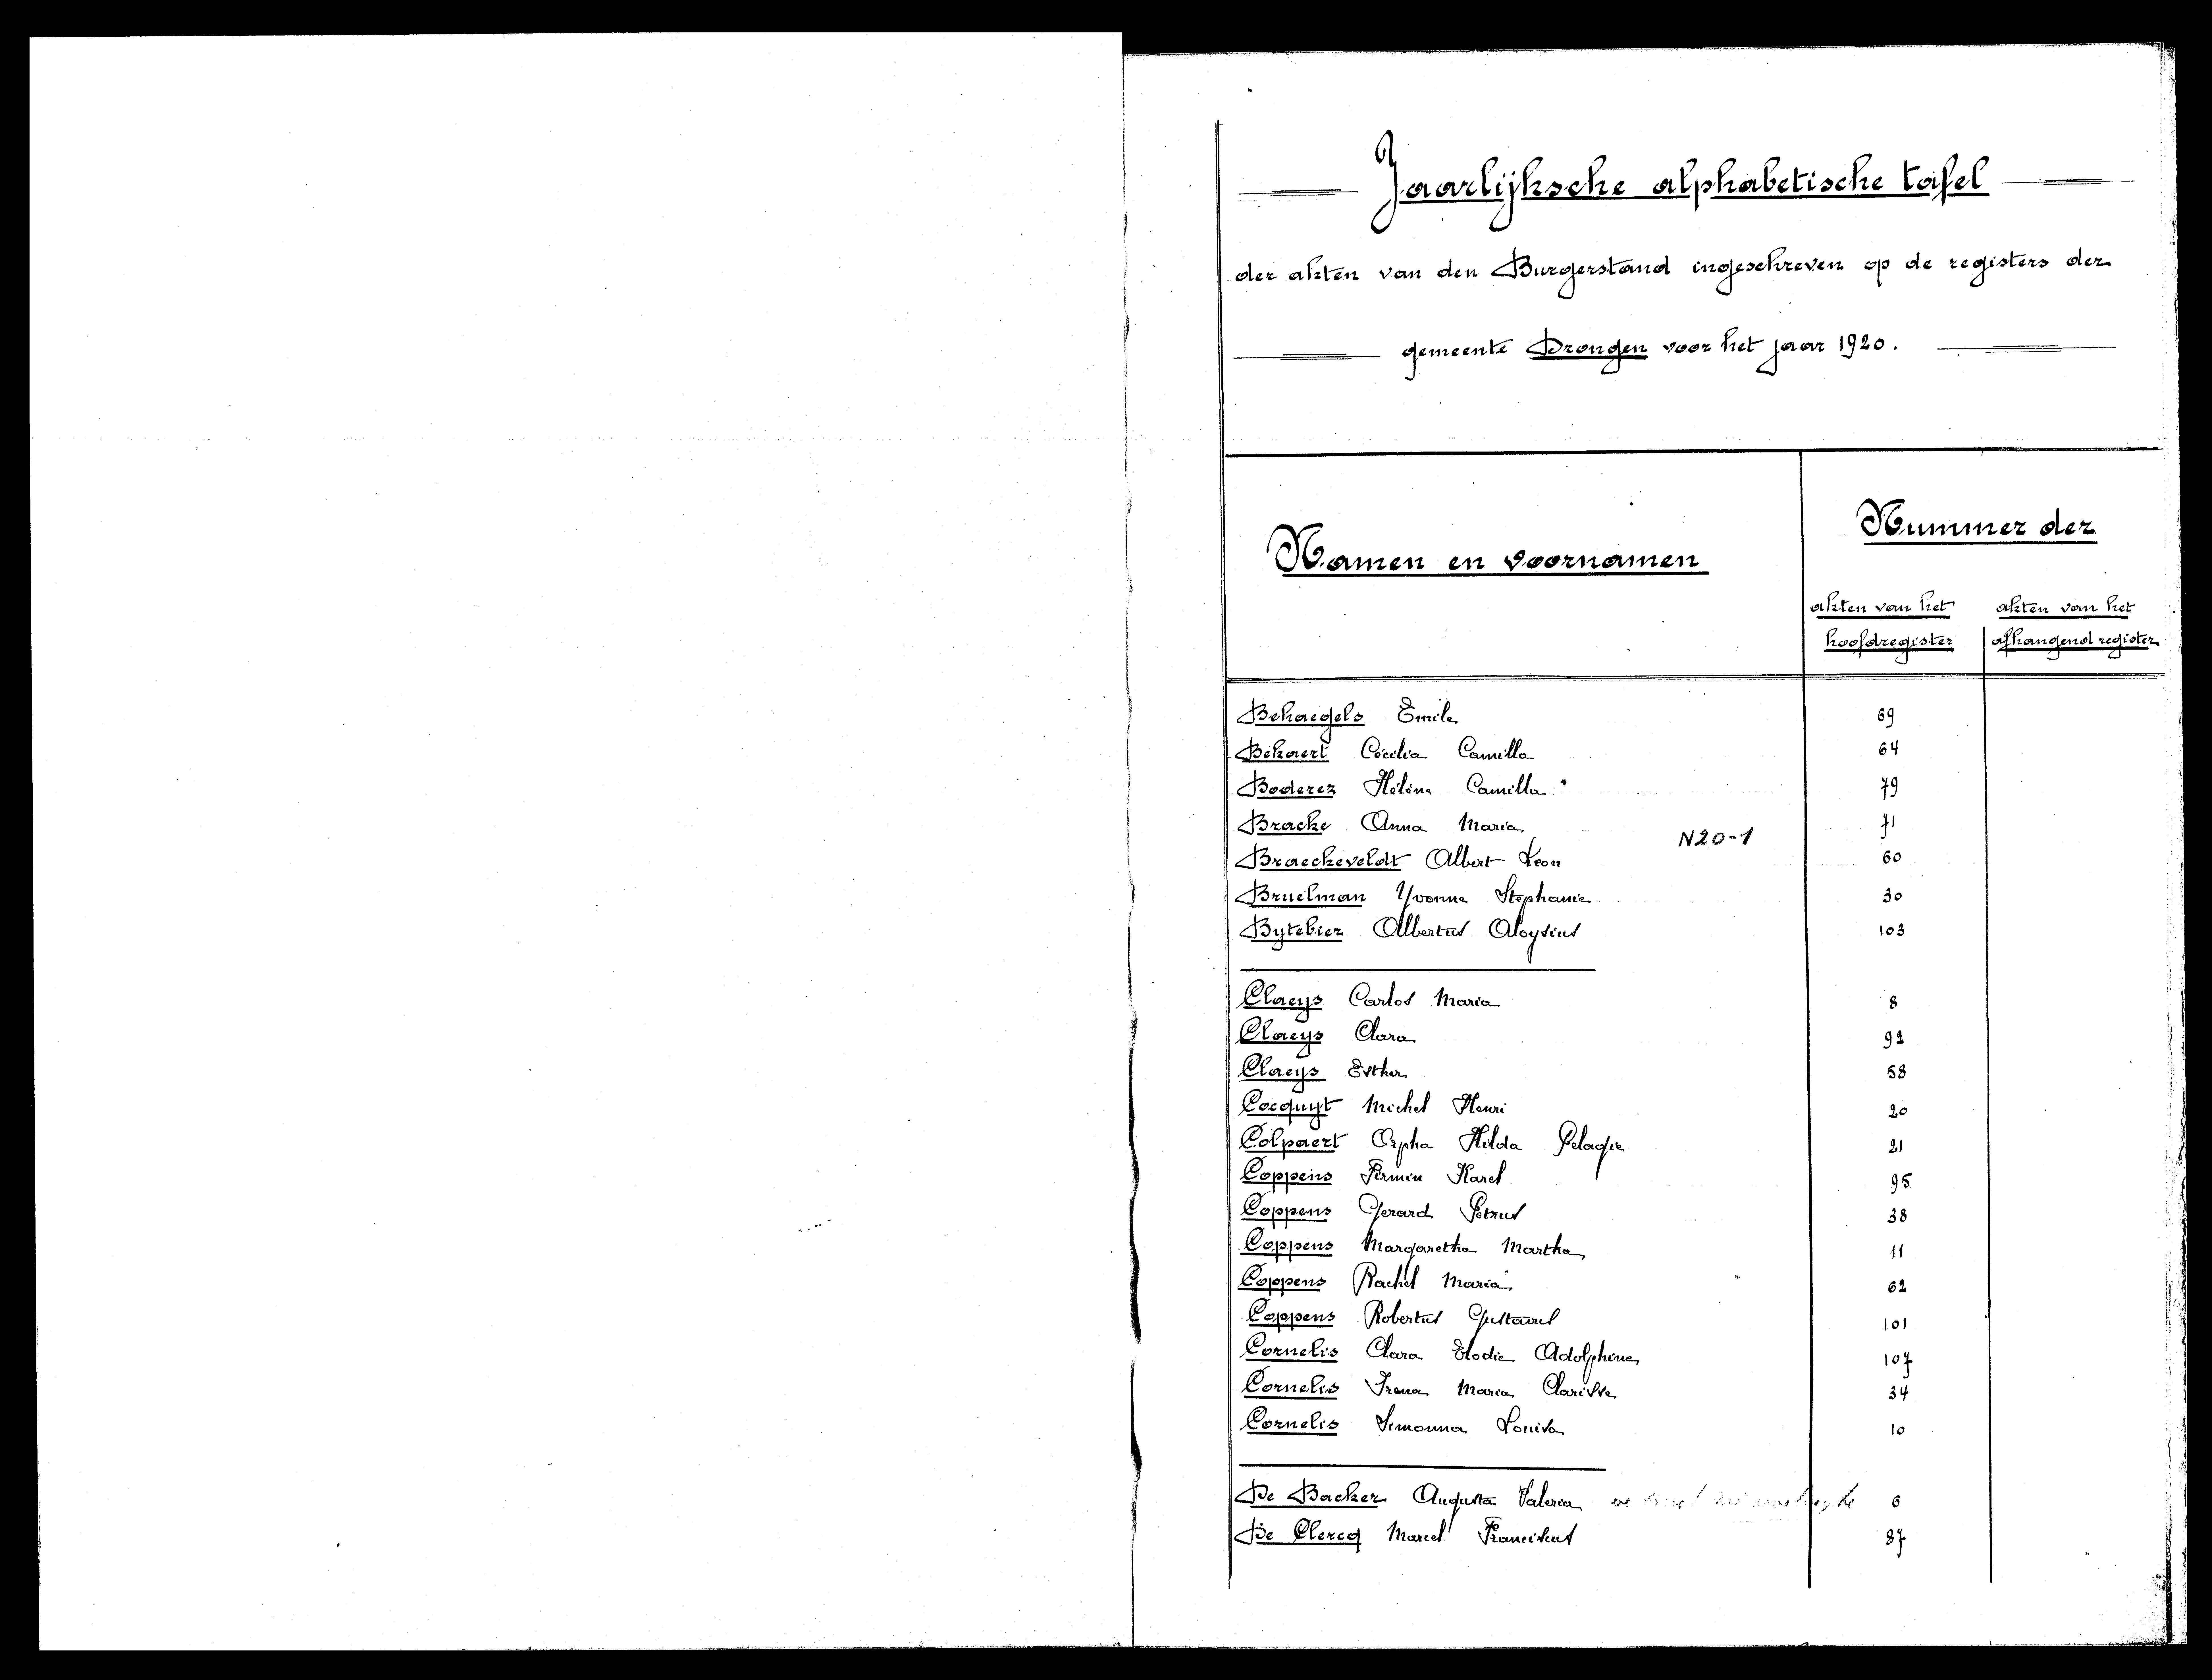 Jaarlijksche alphabetische tafel
der akten van den Burgerstand ingeschreven op de registers der
gemeente Drongen voor het jaar 1920.
Namen en voornamen
Nummer der
akten van het hoofdregister
akten van het afhangend register
Behaegels Emile 69
Bekaert Cécilia Camilla 64
Boderez Hélèna Camilla 79
Bracke Anna Maria 71
N20-1
Braeckeveldt Albert Leon 60
Bruelman Yvonna Stephanie 30
Bytebier Albertus Aloysius 103
Claeys Carlos Maria 8
Claeys Clara 92
Claeys Esther 58
Cocquyt Michel Henri 20
Colpaert Orpha Hilda Pelagie 21
Coppens Firmin Karel 95
Coppens Gerard Petrus 38
Coppens Margaretha Martha 11
Coppens Rachel Maria 62
Coppens Robertus Gustavus 101
Cornelis Clara Elodie Adolphine 107
Cornelis Irena Maria Clarisse 34
Cornelis Simonna Louisa 10
De Backer Augusta Valeria 6
De Clercq Marcel Franciscus 87